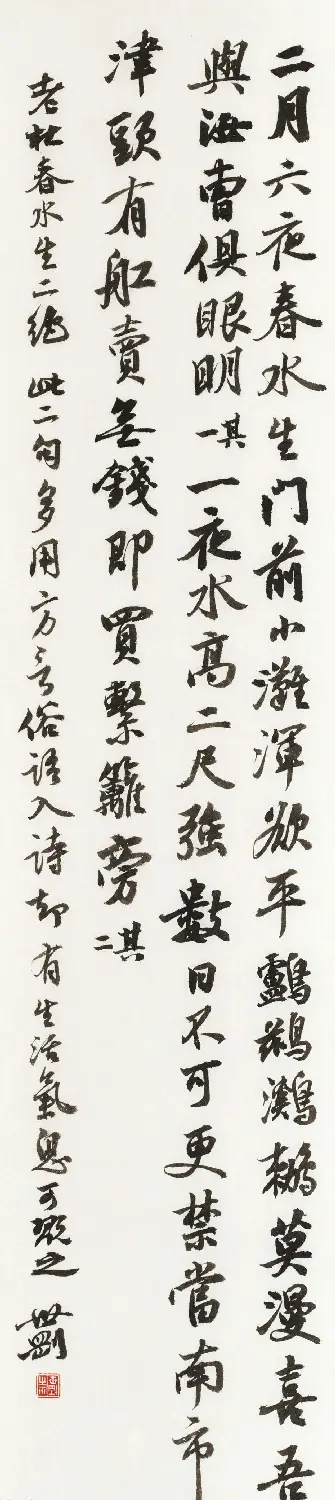 二月六夜春水生門前小灘渾欲平鸕鷀鸂鶒莫漫喜吾
與汝曹俱眼明其一一夜水高二尺強數日不可更禁當南市
津頭有舡賣無錢即買繫籬旁其二
老杜春水生二絕 此二句多用方言俗語入詩却有生活氣息可之 世剛